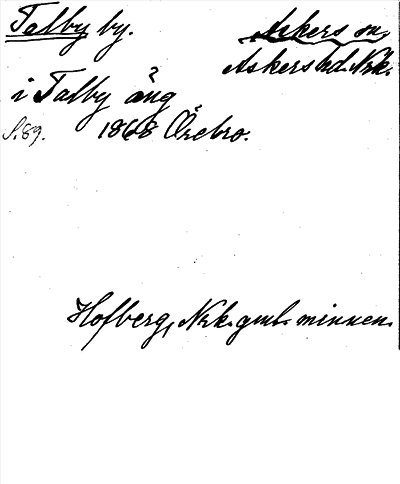 Talby by. Askers sn,
Askers hd. Nrk.
i Talby äng
S. 89. 1868 Örebro.
Hofberg, Nrk. gml. minnen.